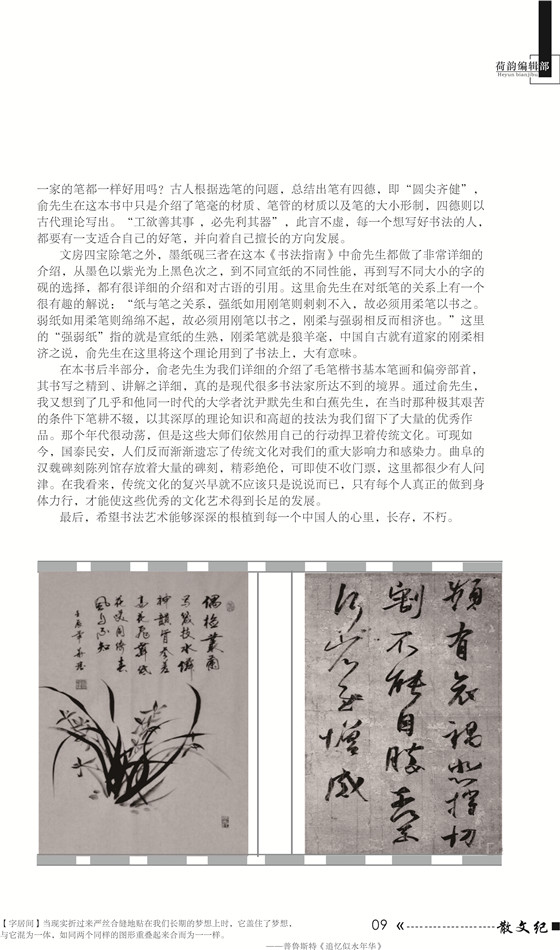 荷韵编辑部
Heyun bianjibu
一家的笔都一样好用吗？古人根据选笔的问题，总结出笔有四德，即“圆尖齐健”，
俞先生在这本书中只是介绍了笔毫的材质、笔管的材质以及笔的大小形制，四德则以
古代理论写出。“工欲善其事 ，必先利其器”，此言不虚，每一个想写好书法的人，
都要有一支适合自己的好笔，并向着自己擅长的方向发展。
文房四宝除笔之外，墨纸砚三者在这本《书法指南》中俞先生都做了非常详细的
介绍，从墨色以紫光为上黑色次之，到不同宣纸的不同性能，再到写不同大小的字的
砚的选择，都有很详细的介绍和对古语的引用。这里俞先生在对纸笔的关系上有一个
很有趣的解说：“纸与笔之关系，强纸如用刚笔则刺刺不入，故必须用柔笔以书之。
弱纸如用柔笔则绵绵不起，故必须用刚笔以书之，刚柔与强弱相反而相济也。”这里
的“强弱纸”指的就是宣纸的生熟，刚柔笔就是狼羊毫，中国自古就有道家的刚柔相
济之说，俞先生在这里将这个理论用到了书法上，大有意味。
在本书后半部分，俞老先生为我们详细的介绍了毛笔楷书基本笔画和偏旁部首，
其书写之精到、讲解之详细，真的是现代很多书法家所达不到的境界。通过俞先生，
我又想到了几乎和他同一时代的大学者沈尹默先生和白蕉先生，在当时那种极其艰苦
的条件下笔耕不辍，以其深厚的理论知识和高超的技法为我们留下了大量的优秀作
品。那个年代很动荡，但是这些大师们依然用自己的行动捍卫着传统文化。可现如
今，国泰民安，人们反而渐渐遗忘了传统文化对我们的重大影响力和感染力。曲阜的
汉魏碑刻陈列馆存放着大量的碑刻，精彩绝伦，可即使不收门票，这里都很少有人问
津。在我看来，传统文化的复兴早就不应该只是说说而已，只有每个人真正的做到身
体力行，才能使这些优秀的文化艺术得到长足的发展。
最后，希望书法艺术能够深深的根植到每一个中国人的心里，长存，不朽。
频有哀祸悲摧切
割不能自胜奈何
奈何省慰增感
【字居间】当现实折过来严丝合缝地贴在我们长期的梦想上时，它盖住了梦想，
与它混为一体，如同两个同样的图形重叠起来合而为一一样。
——普鲁斯特《追忆似水年华》
09
散文纪